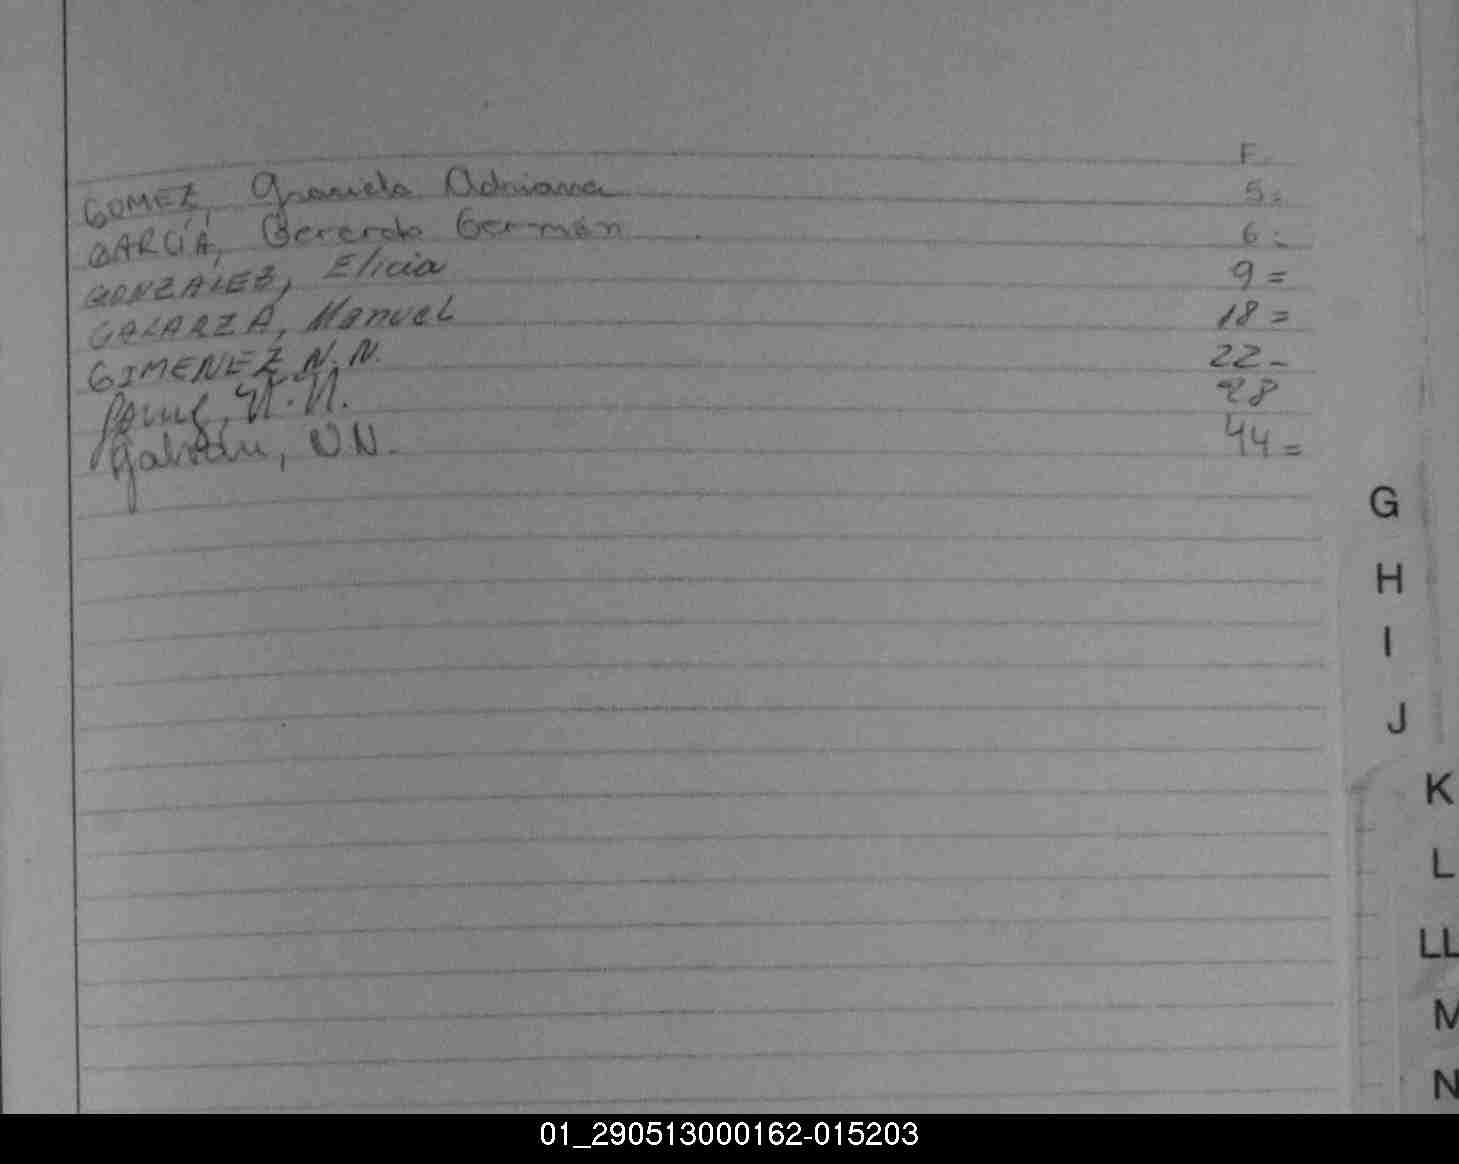 F.
GOMEZ, Graciela Adriana 5=
GARCÍA, Gerardo Germán 6=
GONZALEZ, Elicia 9=
GALARZA, Manuel 18=
GIMENEZ N.N. 22-
N.N. 28
Galván, NN. 44=
G
H
I
J
K
L
LL
M
N
01_290513000162-015203